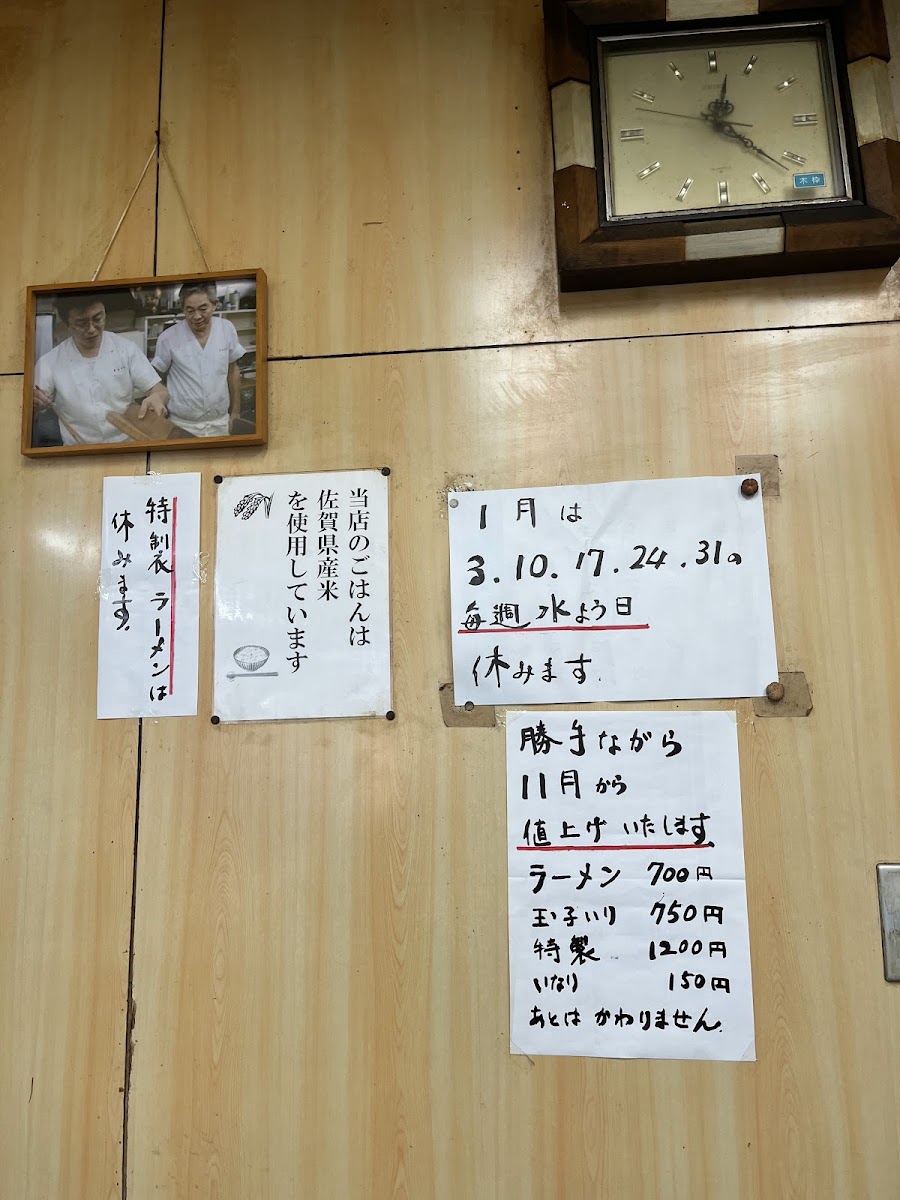 木枠
特製ラーメンは
休みます。
当店のごはんは
佐賀県産米
を使用しています
1月は
3.10.17.24.31の
毎週水よう日
休みます.
勝手ながら
11月から
値上げいたします。
ラーメン 700円
玉子いり 750円
特製 1200円
いなり 150円
あとはかわりません.